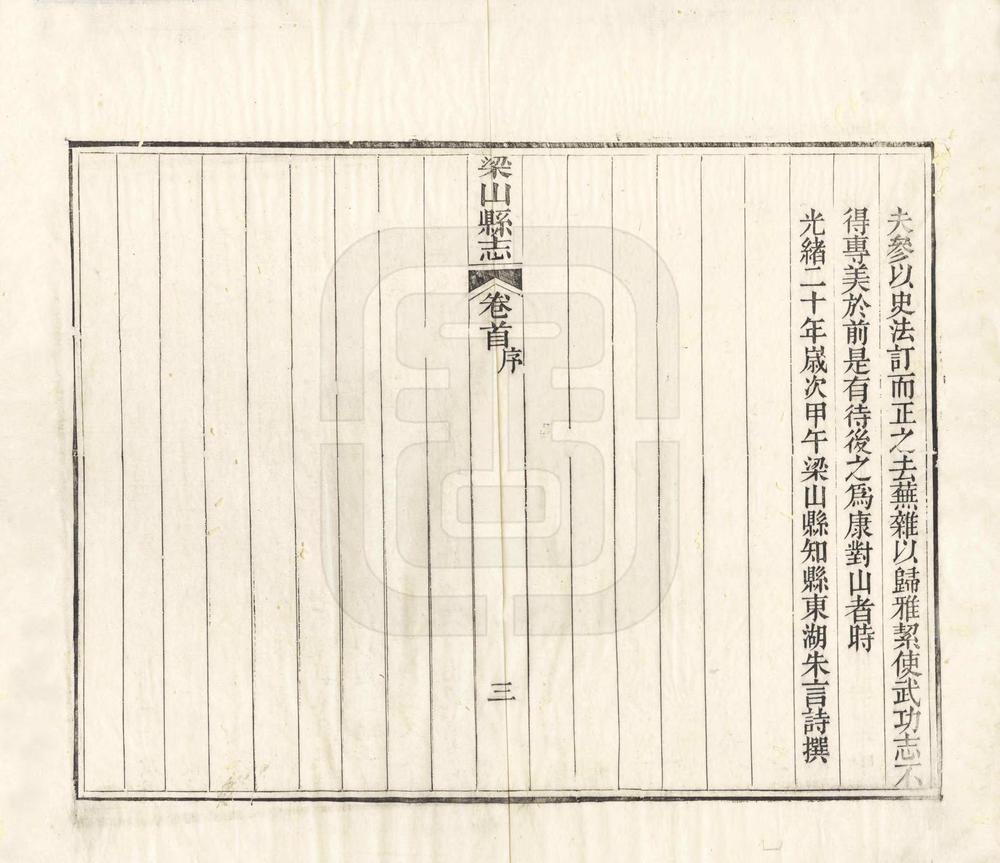 夫參以史法訂而正之去蕪雜以歸雅絜使武功志不
得專美於前是有待後之爲康對山者時
光緒二十年歲次甲午梁山縣知縣東湖朱言詩撰
梁山縣志
卷首
序
三